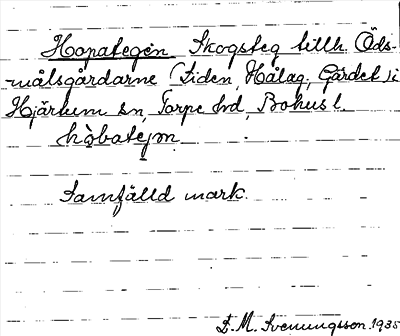 Hopategen Skogsteg tillh. Öds-
målsgårdarne (Liden, Hålag, Gärdet) i
Hjärtum sn, Torpe hd, Bohusl.
hòbatejm
Samfälld mark.
D. M. Svenungsson 1935